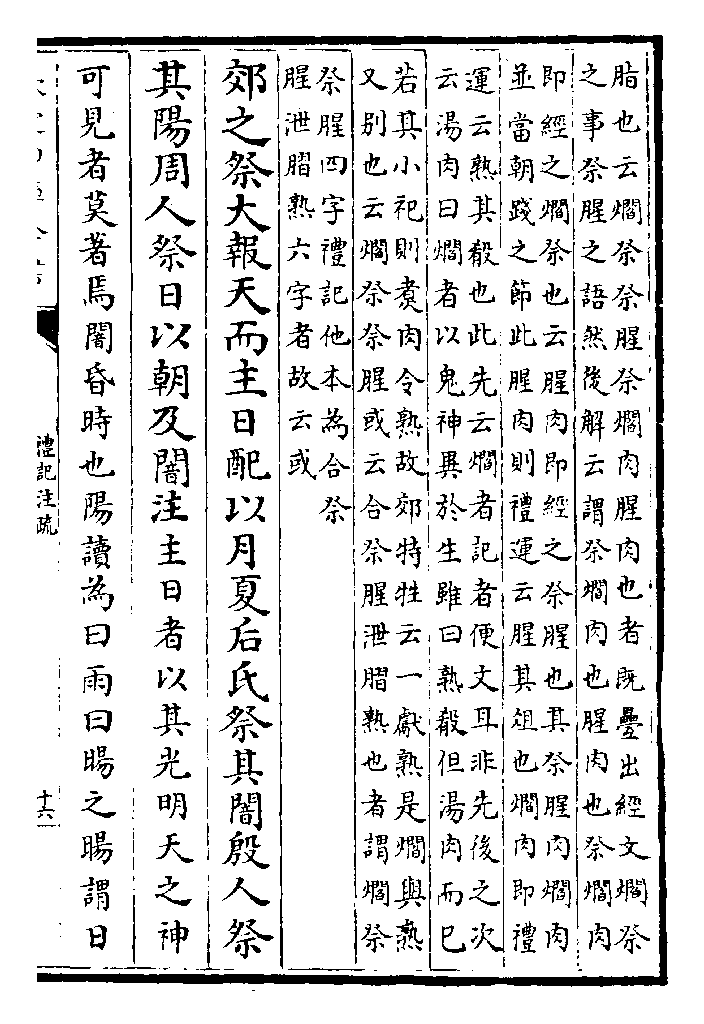 脂也云爓祭祭腥祭爓肉腥肉也者既疊出經文爓祭
之事祭腥之語然後解云謂祭爓肉也腥肉也祭爓肉
即經之爓祭也云腥肉即經之祭腥也其祭腥肉爓肉
並當朝踐之節此腥肉則禮運云腥其俎也爓肉即禮
運云熟其殽也此先云爓者記者便文耳非先後之次
云湯肉曰爓者以鬼神異於生雖曰熟殽但湯肉而巳
若其小祀則煑肉令熟故郊特牲云一獻熟是爓與熟
又别也云爓祭祭腥或云合祭腥泄膶熟也者謂爓祭
祭腥四字禮記他本為合祭
腥泄膶熟六字者故云或
郊之祭大報天而主日配以月夏后氏祭其闇殷人祭
其陽周人祭日以朝及闇注主日者以其光明天之神
可見者莫著焉闇昏時也陽讀為曰雨曰暘之暘謂日
禮記注疏
十六